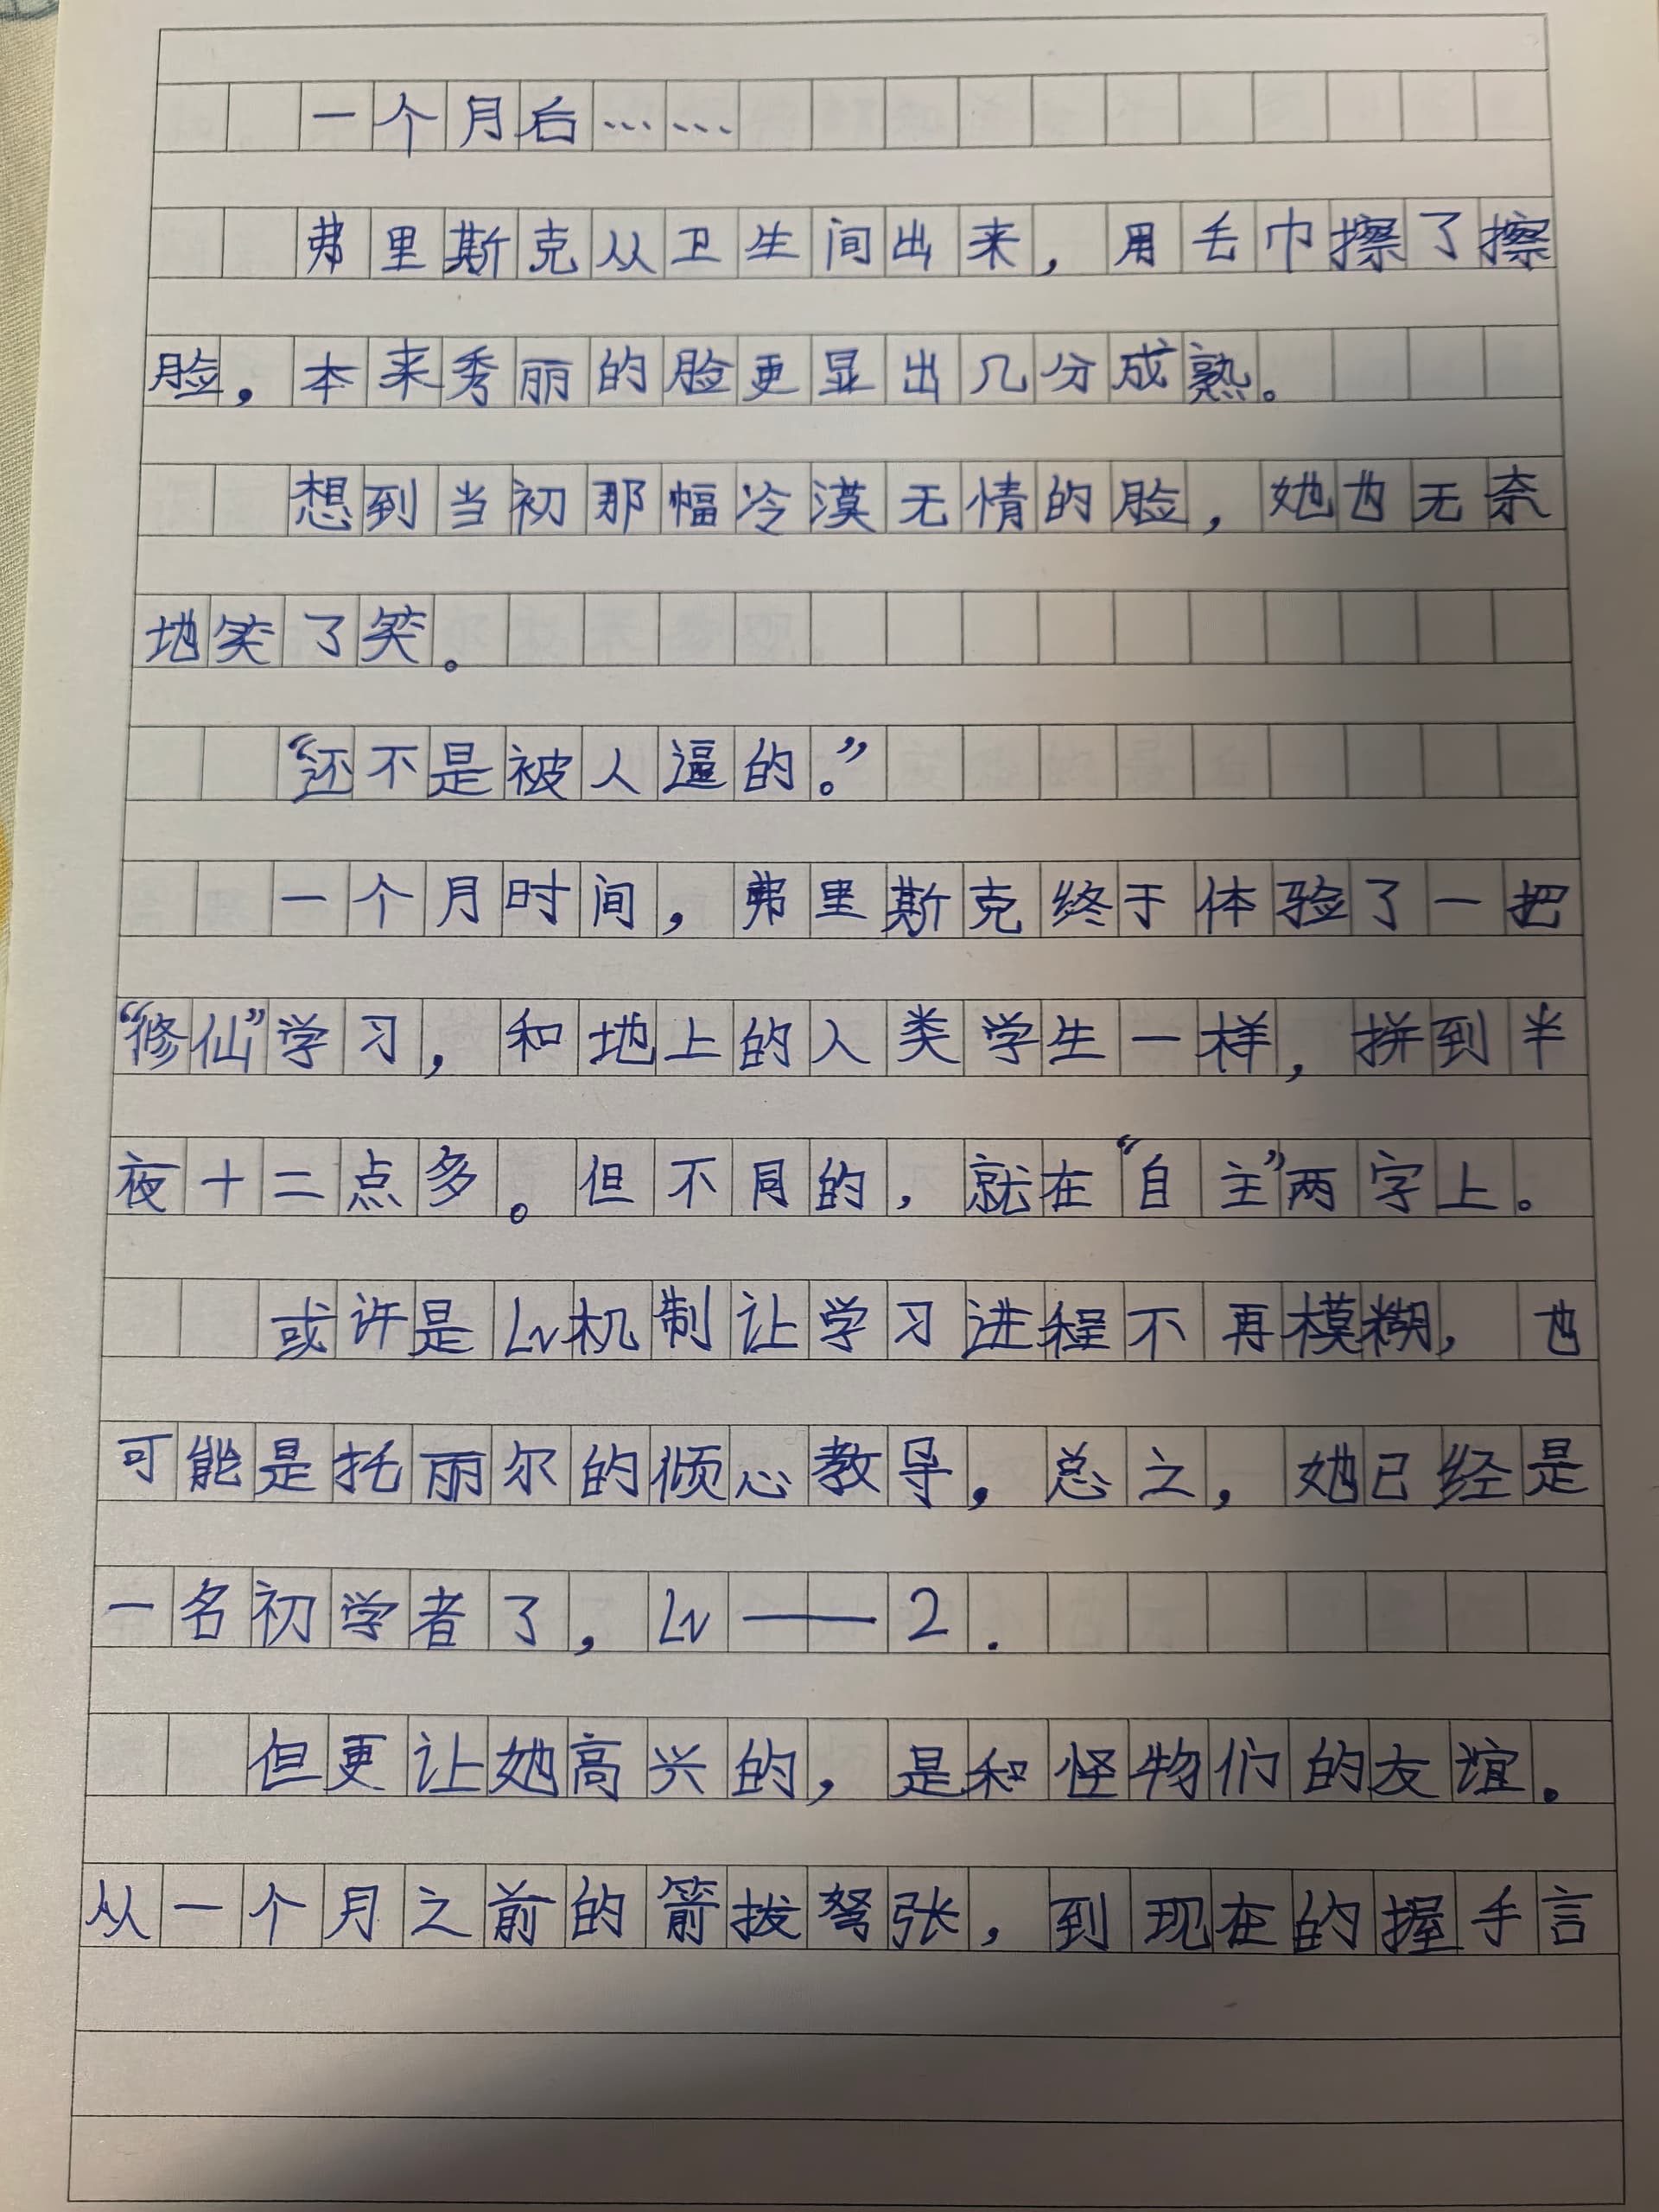 一个月后……
弗里斯克从卫生间出来，用毛巾擦了擦
脸，本来秀丽的脸更显出几分成熟。
想到当初那幅冷漠无情的脸，她也无奈
地笑了笑。
“还不是被人逼的。”
一个月时间，弗里斯克终于体验了一把
“修仙”学习，和地上的人类学生一样，拼到半
夜十二点多。但不同的，就在“自主”两字上。
或许是Lv机制让学习进程不再模糊，也
可能是托丽尔的倾心教导，总之，她已经是
一名初学者了，Lv——2.
但更让她高兴的，是和怪物们的友谊。
从一个月之前的箭拔弩张，到现在的握手言